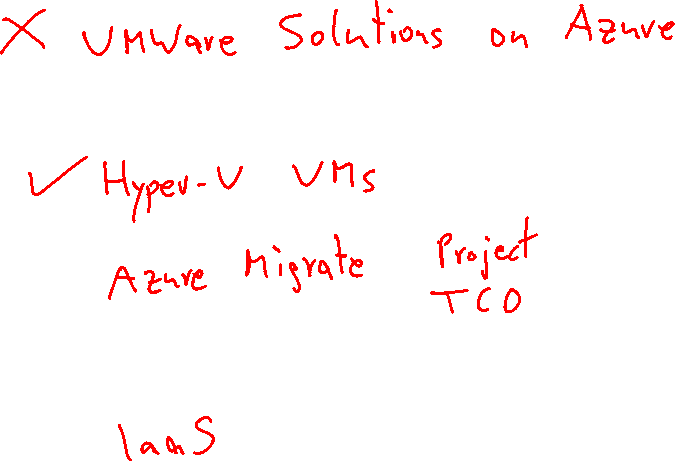 X VMWare Solutions on Azure
✓ Hyper-V VMs
Azure Migrate Project
TCO
IaaS